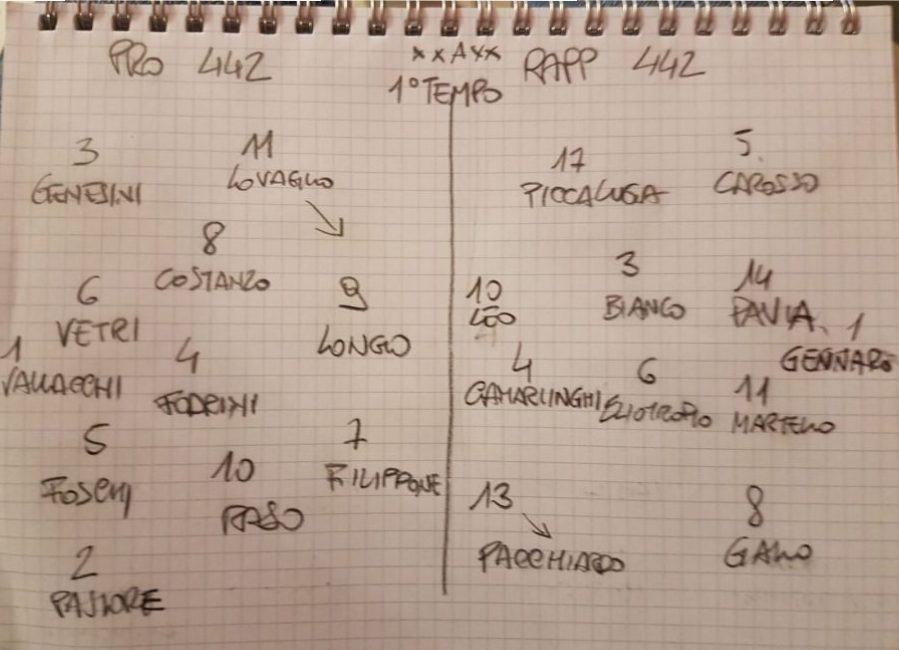 PRO 442
xxAxx
RAPP 442
1° TEMPO
3
GENESINI
11
LOVAGLIO
8
COSTANZO
6
VETRI
9
LONGO
1
VALLACCHI
4
FODRINI
5
10
RASO
7
FILIPPONE
2
PASTORE
17
PICCALUGA
5.
CAROSSO
10
LEO
3
BIANCO
14
PAVIA
1
GENNARO
4
CAMARLINGHI
6
ELIOTROPIO
11
MARTELLO
13
PACCHIARDO
8
GALLO